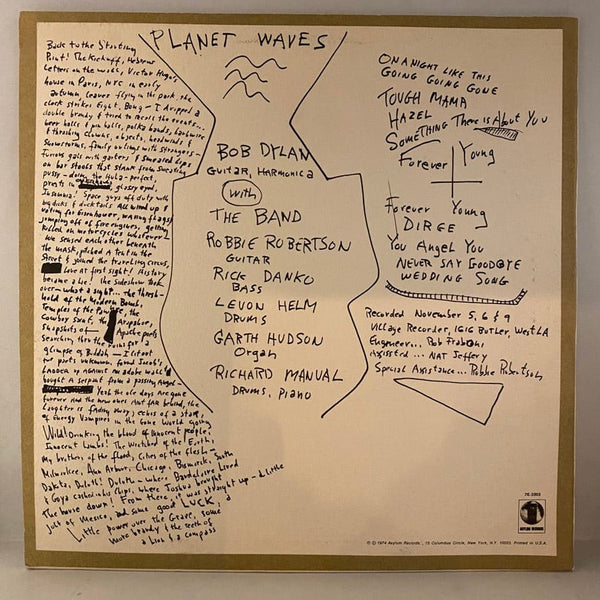 PLANET WAVES
Back to the Starting
Point! The Kickoff, Hebrew
Letters on the walls, Victor Hugo's
house in Paris, NYC in early
autumn, leaves flying in the park, the
clock strikes Eight, Bong - I dropped a
double brandy & tried to recall the events...
beer halls & pin balls, polka bands, barbwire
& thrashing clowns, objects, headwinds &
snowstorms, family outings with strangers -
Furious gals with garters & smeared lips
on bar stools that stank from sweating
pussy - doing the Hula - perfect,
priests in glassy eyed,
Insomnia! Space guys off duty with
big dicks & ducktails all wired up &
voting for Eisenhower, waving flags &
jumping off of fire engines, getting
killed on motorcycles whatever -
We sensed each other beneath
the mask, pitched a tent in the
Street & joined the traveling circus,
Love at first sight! History
became a lie! the sideshow took
over - what a sight... the thresh-
hold of the Modern Bomb,
Temples of the the
Cowboy Saint, the Airplane,
snapshots of Apache poets
Searching thru the ruins for a
glimpse of Buddah - I lit out
for parts unknown, found Jacob's
Ladder up against an adobe wall &
bought a serpent from a passing Angel -
Yeah the ole days are gone
forever and the new ones Aint far behind, the
Laughter is fading away, echos of a star,
of Energy Vampires in the Gone World going
Wild! Drinking the blood of innocent people,
Innocent Lambs! The Wretched of the Earth,
My brothers of the flood, Cities of the flesh -
Milwaukee, Ann Arbor, Chicago, Bismarck, South
Dakota, Duluth! Duluth - where Baudelaire Lived
& Goya cashed in his Chips, where Joshua brought
the house down! From there, it was straight up - a little
jolt of Mexico, and some good LUCK, a
Little power over the Grave, some
more brandy & the teeth of
a Lion & a compass
BOB DYLAN
GUITAR, HARMONICA
with
THE BAND
ROBBIE ROBERTSON
GUITAR
RICK DANKO
BASS
LEVON HELM
DRUMS
GARTH HUDSON
Organ
RICHARD MANUAL
DRUMS, PIANO
ON A NIGHT LIKE THIS
GOING GOING GONE
TOUGH MAMA
HAZEL
SOMETHING There is About YOU
Forever Young
Forever Young
DIRGE
You Angel You
NEVER SAY GOODBYE
WEDDING SONG
Recorded November 5, 6 & 9
Village Recorder, 1616 Butler, West LA
Engineer... Rob Fraboni
Assisted... NAT Jeffery
Special Assistance... Robbie Robertson
7E-1003
ASYLUM RECORDS
℗ © 1974 Asylum Records, 15 Columbus Circle, New York, N.Y. 10023. Printed in U.S.A.